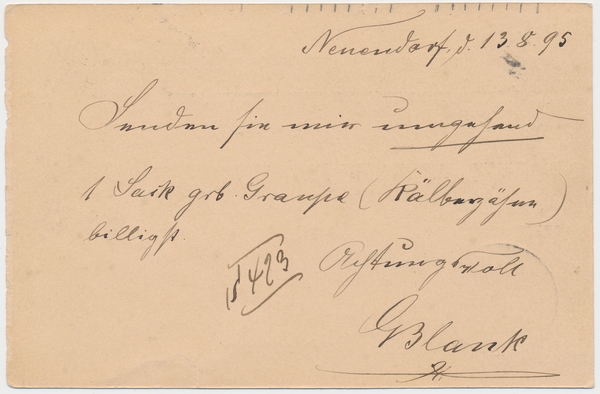 Neuendorf, d. 13.8.95
Senden sie mir umgehend
1 Sack grb. Graupe (Kälberzähne)
billigst.
Achtungsvoll
GBlank